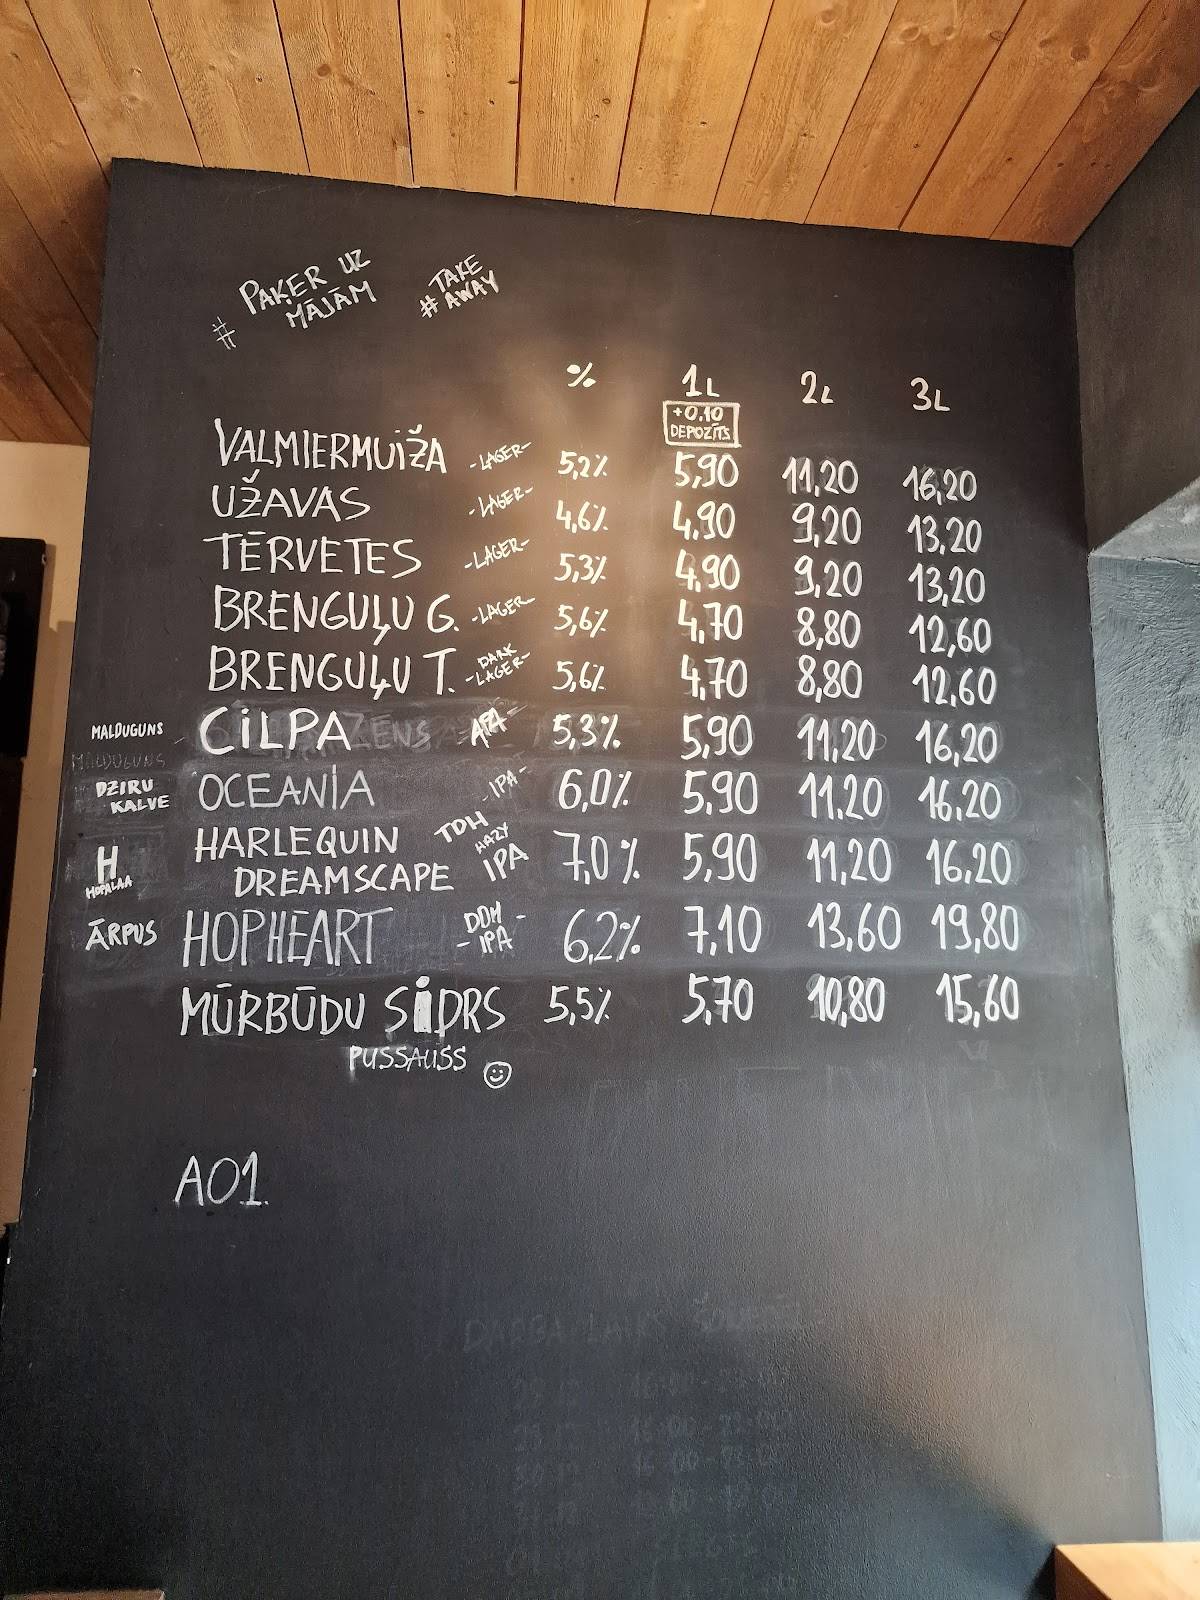 # PAĶER UZ MĀJĀM
# TAKE AWAY
% 1L 2L 3L
+0.10 DEPOZĪTS
VALMIERMUIŽA -LAGER- 5,2% 5,90 11,20 16,20
UŽAVAS -LAGER- 4,6% 4,90 9,20 13,20
TĒRVETES -LAGER- 5,3% 4,90 9,20 13,20
BRENGUĻU G. -LAGER- 5,6% 4,70 8,80 12,60
BRENGUĻU T. -DARK LAGER- 5,6% 4,70 8,80 12,60
MALDUGUNS CILPA APA 5,3% 5,90 11,20 16,20
MALDUGUNS
DZIRU KALVE OCEANIA -IPA- 6,0% 5,90 11,20 16,20
H HOPALAA HARLEQUIN DREAMSCAPE TDH HAZY IPA 7,0% 5,90 11,20 16,20
ĀRPUS HOPHEART DDH -IPA- 6,2% 7,10 13,60 19,80
MŪRBŪDU SIDRS 5,5% 5,70 10,80 15,60
PUSSAUSS
A01.
DARBA LAIKS